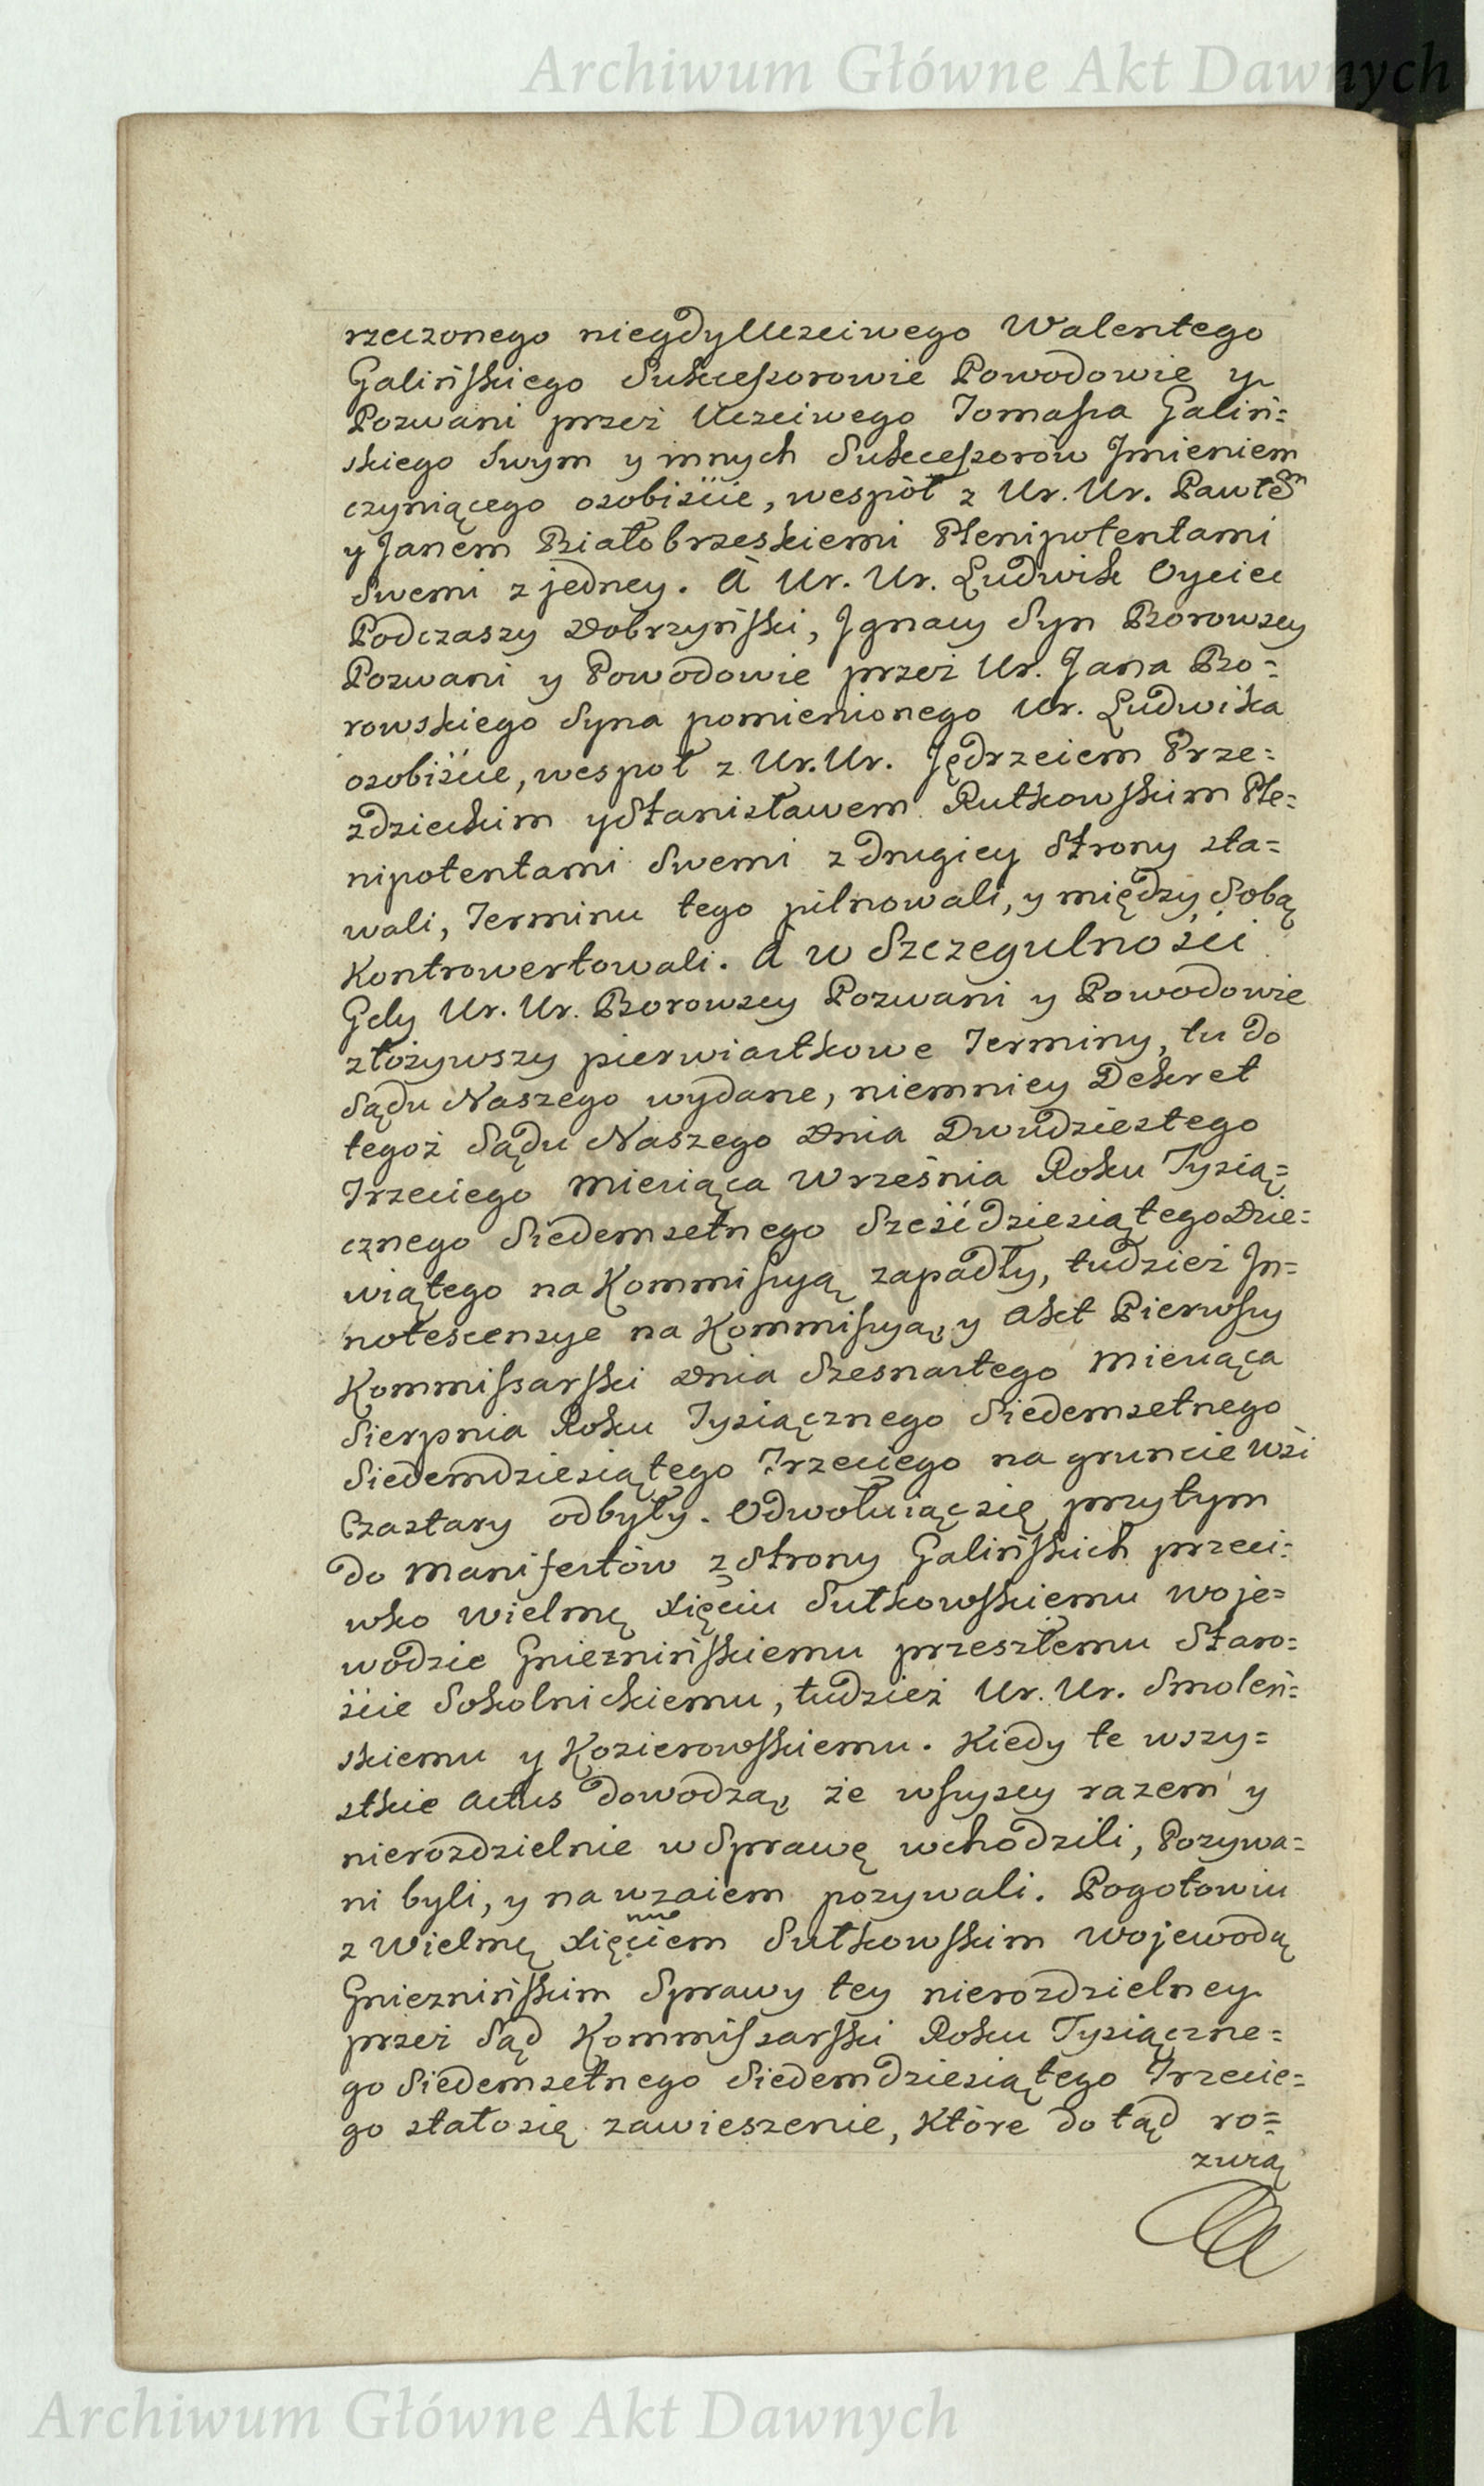 Archiwum Główne Akt Dawnych
rzeczonego niegdy Uczciwego Walentego
Galińskiego Sukcessorowie Powodowie y
Pozwani przez Uczciwego Tomasza Galiń=
skiego swym y innych Sukcessorów Jmieniem
czyniącego osobiście, wespół z Ur. Ur. Pawłem
y Janem Białobrzeskiemi Plenipotentami
Swemi z jedney. A Ur. Ur. Ludwik Oyciec
Podczaszy Dobrzyński, Jgnacy Syn Borowscy
Pozwani y Powodowie przez Ur. Jana Bo=
rowskiego Syna pomienionego Ur. Ludwika
osobiście, wespoł z Ur. Ur. Jędrzeiem Prze=
zdzieckim y Stanisławem Rutkowskim Ple=
nipotentami Swemi z drugiey Strony sta=
wali, Terminu tego pilnowali, y między Sobą
Kontrowertowali. A w Szczegulności
Gdy Ur. Ur. Borowscy Pozwani y Powodowie
złożywszy pierwiastkowe Terminy, tu do
Sądu Naszego wydane, niemniey Dekret
tegoż Sądu Naszego Dnia Dwudziestego
Trzeciego Miesiąca Września Roku Tysią=
cznego Siedemsetnego Sześćdziesiątego Dzie=
wiątego na Kommissyą zapadły, tudzież In=
notescensye na Kommissyą, y Akt Pierwszy
Kommissarski Dnia Szesnastego Miesiąca
Sierpnia Roku Tysiącznego Siedemsetnego
Siedemdziesiątego Trzeciego na gruncie wsi
Czastary odbyły. Odwołuiąc się przytym
do Manifestów z Strony Galińskich przeci=
wko Wielmę Xięciu Sułkowskiemu Woje=
wodzie Gnieznińskiemu przeszłemu Staro=
ście Sokolnickiemu, tudzież Ur. Ur. Smoleń=
skiemu y Kozierowskiemu. Kiedy te wszy=
stkie Actus dowodzą, że wszyscy razem y
nierozdzielnie w Sprawę wchodzili, Pozywa=
ni byli, y na wzaiem pozywali. Pogotowiu
z Wielmę Xięciem Sułkowskim Wojewodą
Gnieznińskim Sprawy tey nierozdzielney
przez Sąd Kommissarski Roku Tysiączne=
go Siedemsetnego Siedemdziesiątego Trzecie=
go stało się zawieszenie, Które do tąd ro=
zwią
Archiwum Główne Akt Dawnych